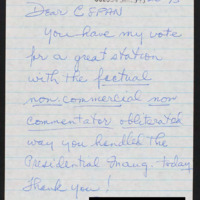 Dear C SPAN
You have my vote
for a great station
with the factual
non commercial non
commentator obliterated
way you handled the
Presidential Inaug. today
Thank you!